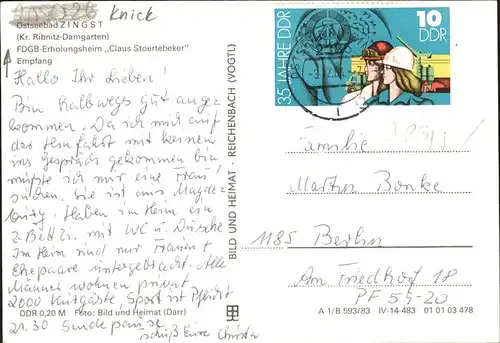 Knick
Ostseebad ZINGST
(Kr. Ribnitz-Damgarten)
FDGB-Erholungsheim „Claus Stoertebeker"
Empfang
Hallo Ihr Lieben!
Bin halbwegs gut ange-
kommen. Da ich mich auf
der Hinfahrt mit keinem
ins Gespräch gekommen bin
müßte ich mir eine Frau
suchen. Sie ist aus Magde-
burg. Haben im Heim ein
2-Bett Zi. mit WC u. Dusche
Im Heim sind nur Frauen u
Ehepaare untergebracht. Alle
Männer wohnen privat
2000 Kurgäste, Sport ist Pflicht
21.30
DDR 0,20 M Foto: Bild und Heimat (Darr)
tschüß Eure Christa
BILD UND HEIMAT · REICHENBACH (VOGTL)
35 JAHRE DDR
10
DDR
Familie
Martin Bonke
1185 Berlin
Am Friedhof 18
PF 54-20
A 1/B 593/83 IV-14-483 01 01 03 478